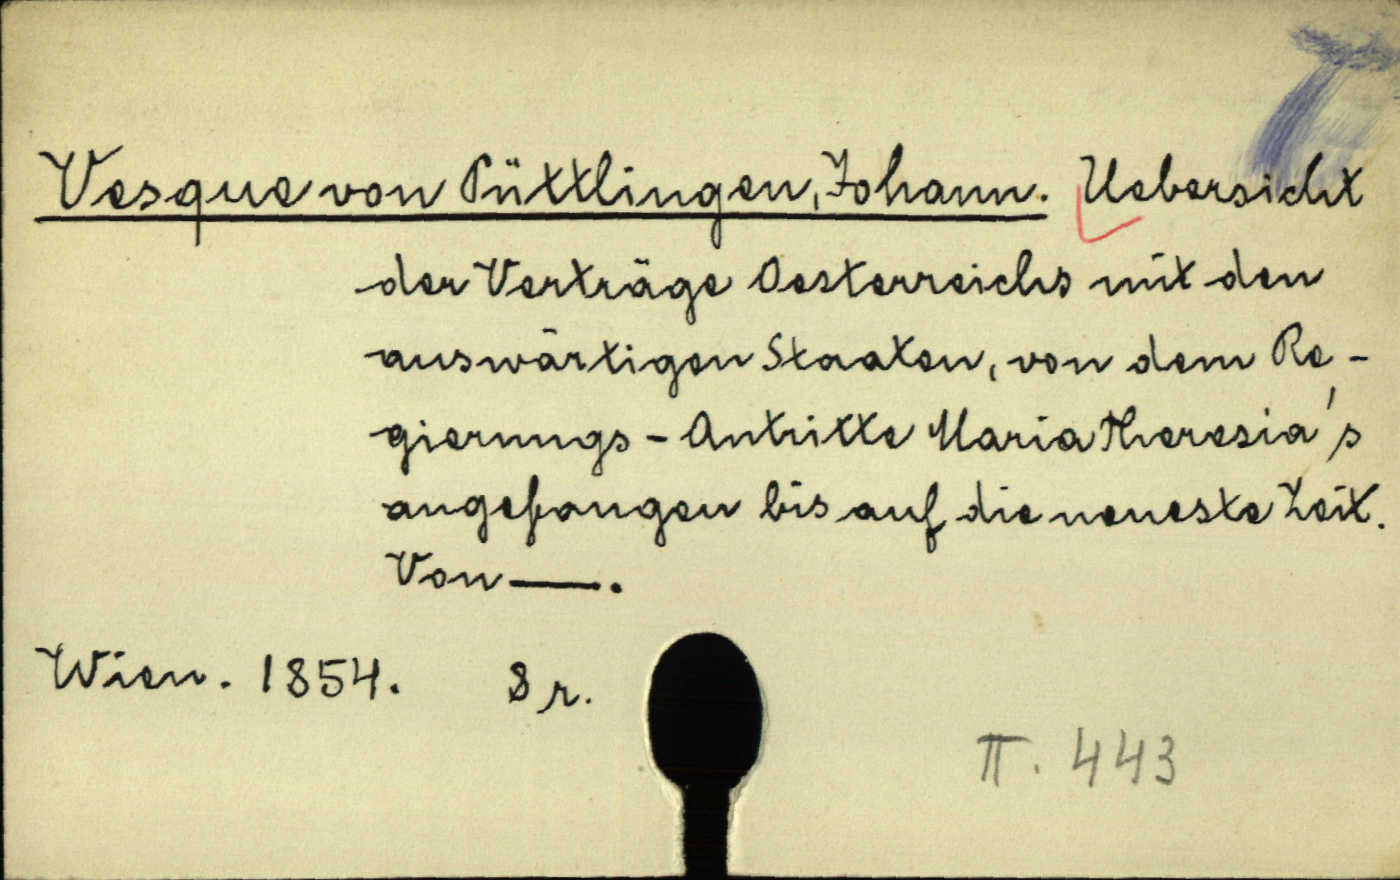 Vesque von Püttlingen, Johann. Uebersicht
der Verträge Oesterreichs mit den
auswärtigen Staaten, von dem Re-
gierungs-Antritte Maria Theresia's
angefangen bis auf die neueste Zeit.
Von —.
Wien. 1854. 8 r.
II. 443